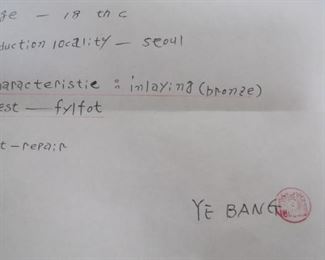 ge — 18 th c
duction locality — seoul
aracteristic : inlaying (bronze)
est — fylfot
t - repair
YE BANG